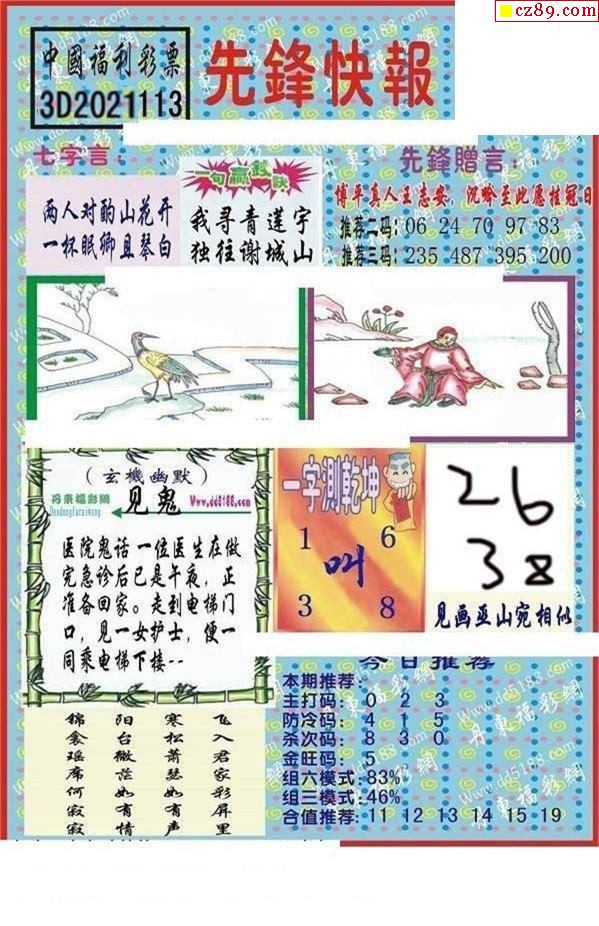 cz89.com
中國福利彩票
3D2021113
先鋒快報
七字言:
两人对酌山花开
一杯眠卿且琴白
一句赢錢訣
我寻青莲宇
独往谢城山
先鋒贈言:
博平真人王志安，沉吟至此愿挂冠日
推荐二码:06 24 70 97 83
推荐三码:235 487 395 200
(玄機幽默)
丹東福彩網
Dandongfucaiwang
见鬼
Www.dd5188.com
医院鬼话 一位医生在做
完急诊后已是午夜，正
准备回家。走到电梯门
口，见一女护士，便一
同乘电梯下楼--
一字測乾坤
1 6
叫
3 8
26
38
见画亚山宛相似
今日推荐
本期推荐:
主打码: 0 2 3
防冷码: 4 1 5
杀次码: 8 3 0
金旺码: 5
组六模式:83%
组三模式:46%
合值推荐:11 12 13 14 15 19
锦 阳 寒 飞
衾 台 松 入
瑶 微 萧 君
席 茫 瑟 家
何 如 如 彩
寂 有 有 屏
寂 情 声 里